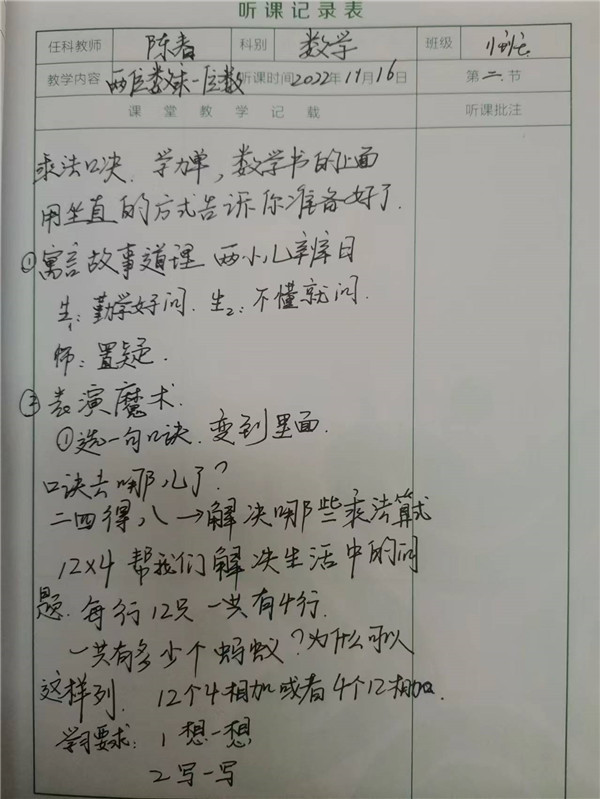 听课记录表
任科教师 陈春 科别 数学 班级
教学内容 两位数乘一位数 听课时间 2022年11月16日 第二节
课堂教学记载 听课批注
乘法口决. 学力单, 数学书的上面
用坐直的方式告诉你准备好了.
①寓言故事道理 两小儿辩日
生1: 勤学好问. 生2: 不懂就问.
师: 置疑.
② 表演魔术.
①选一句口诀. 变到里面.
口诀去哪儿了?
二四得八→解决哪些乘法算式
12×4 帮我们解决生活中的问
题. 每行12只 一共有4行.
一共有多少个蚂蚁? 为什么可以
这样列. 12个4相加或者4个12相加.
学习要求: 1 想一想
2 写一写